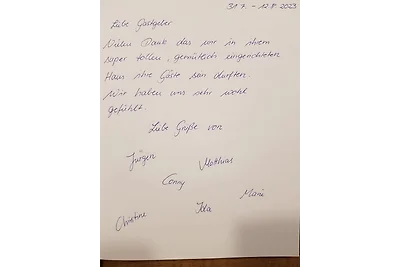 31.7. - 12.8.2023
Liebe Gastgeber
Vielen Dank das wir in ihrem
super tollen, gemütlich eingerichteten
Haus ihre Gäste sein durften.
Wir haben uns sehr wohl
gefühlt.
Liebe Grüße von
Jürgen Matthias
Conny
Marie
Christine Ida